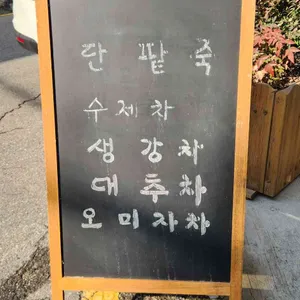 단 팥 죽
수제차
생강차
대추차
오미자차